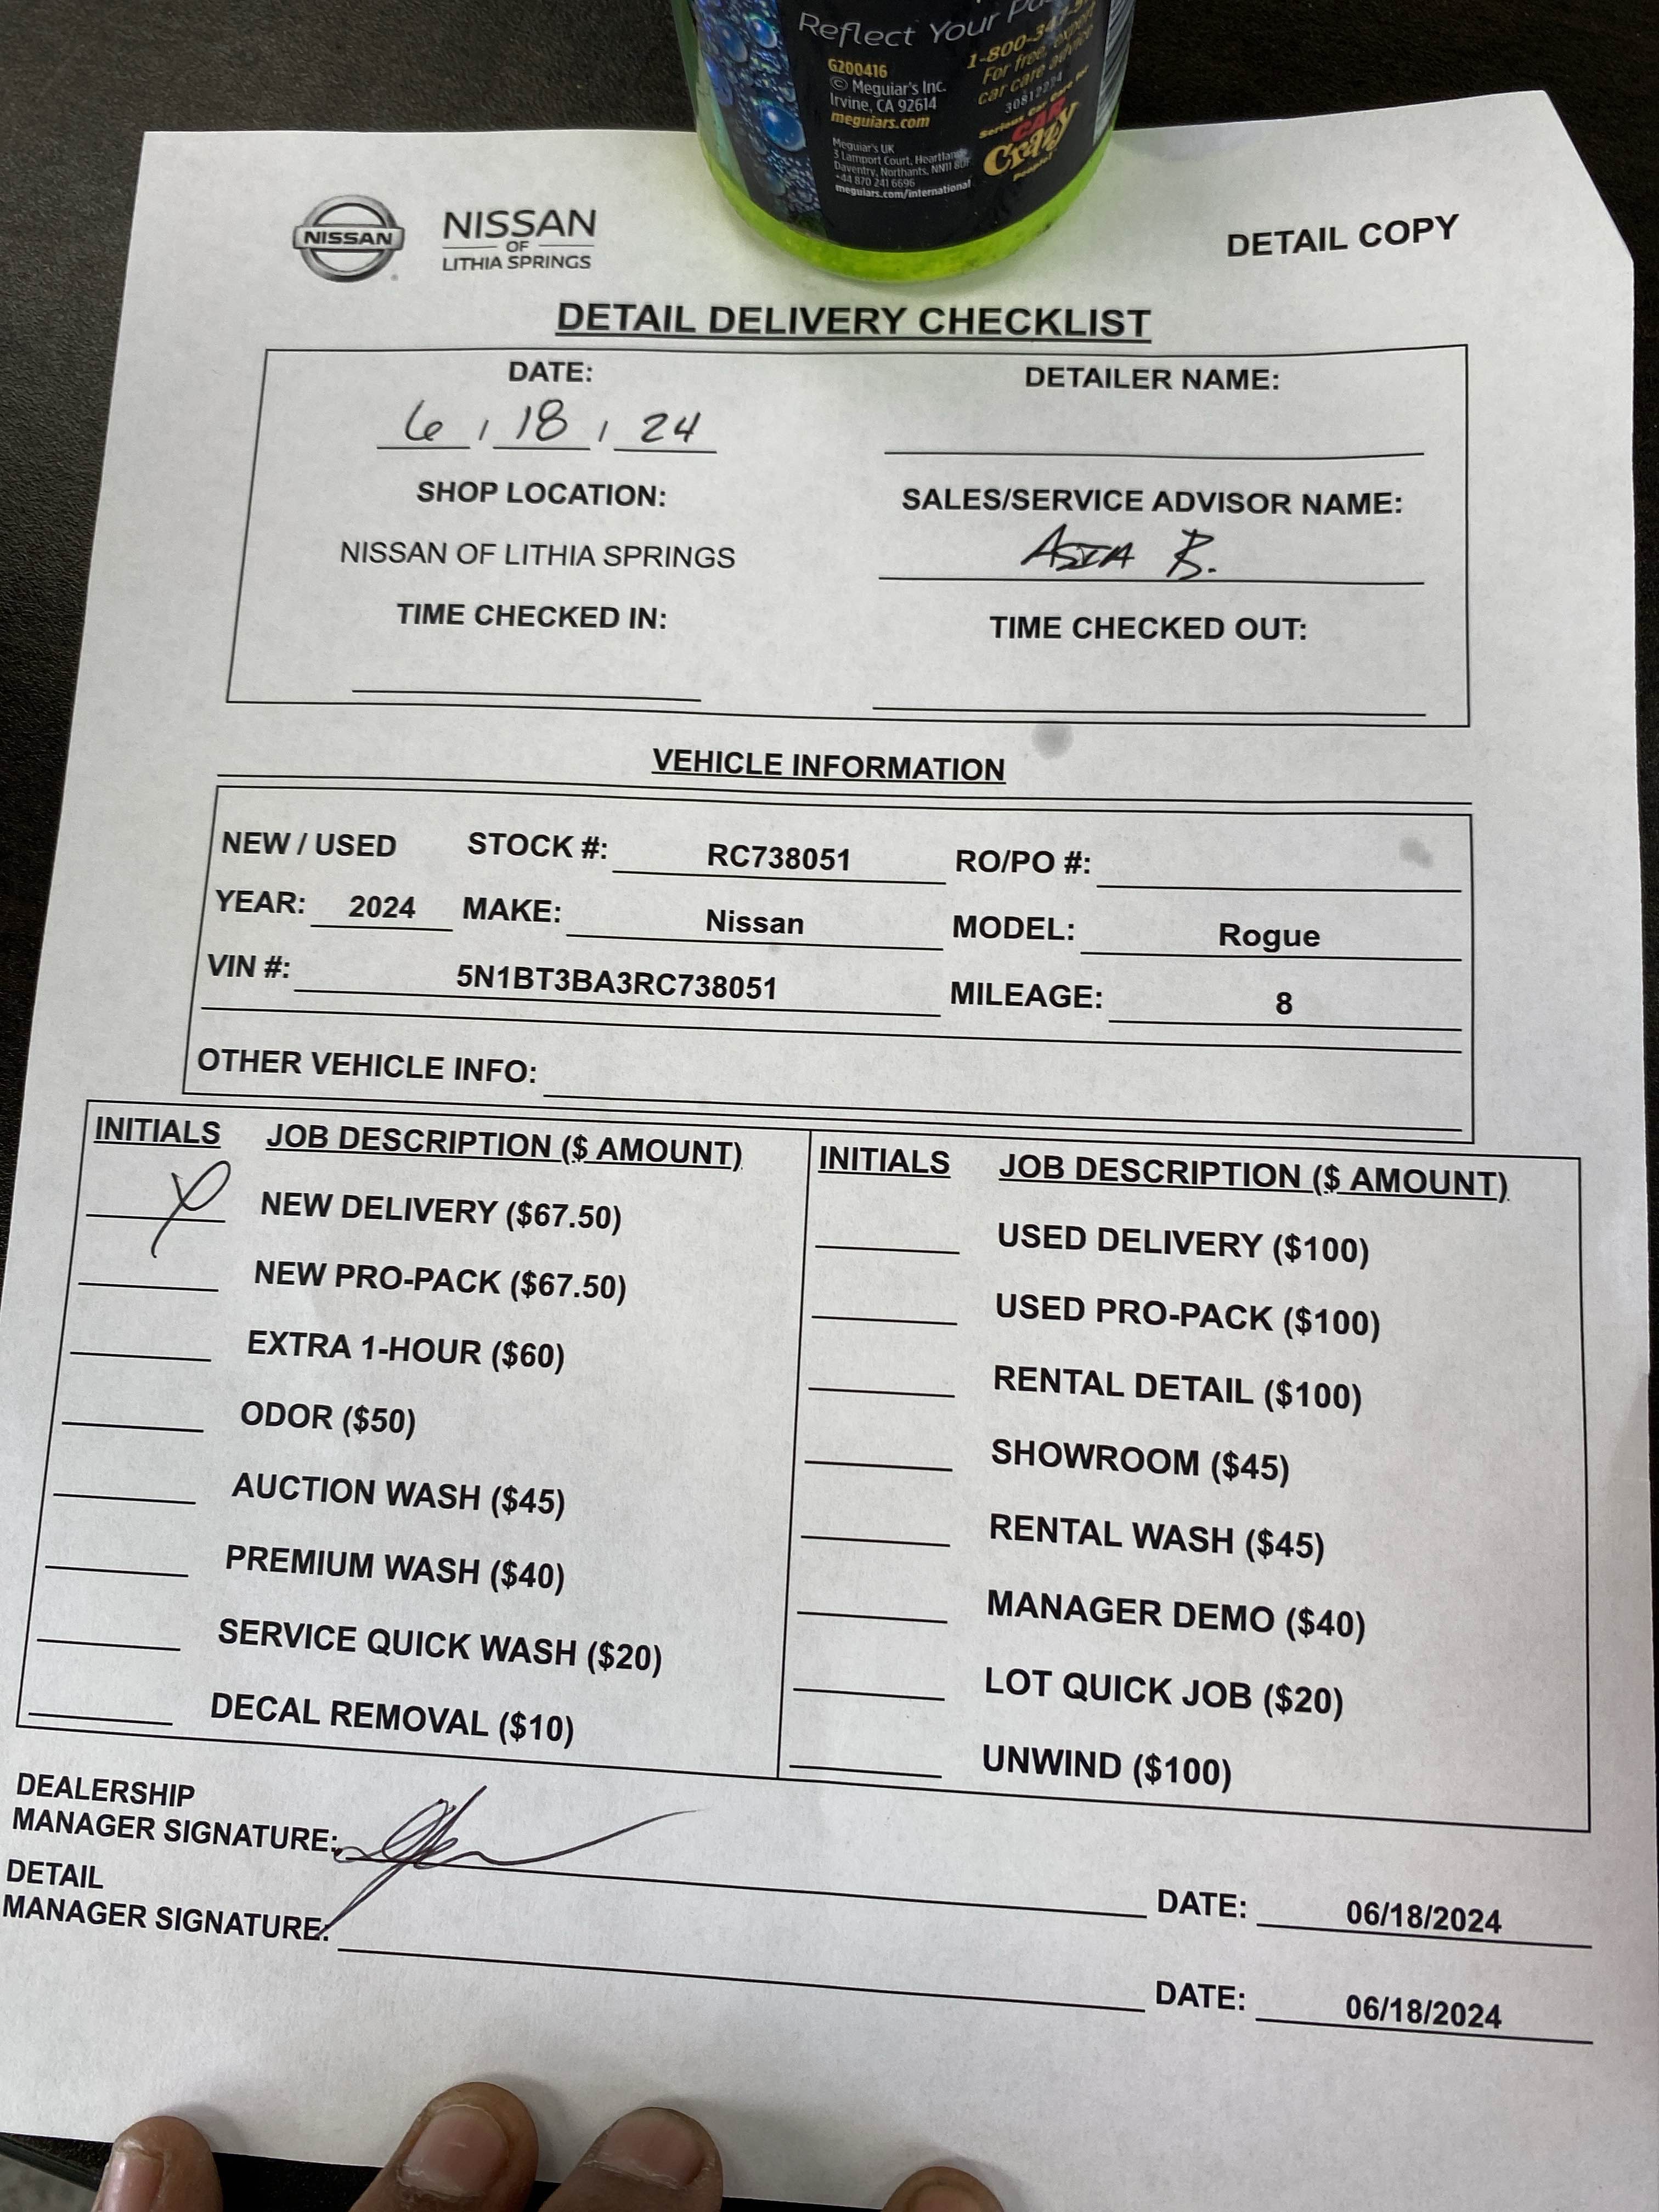 Reflect Your
G200416
© Meguiar's Inc.
Irvine, CA 92614
meguiars.com
Meguiar's UK
3 Lamport Court, Heartlands
Daventry, Northants, NN11 8UF
+44 870 241 6696
meguiars.com/international
1-800-347-5
For free, expert
car care advice
Serious Car Care for
CAR
Crazy
People!
NISSAN
NISSAN
OF
LITHIA SPRINGS
DETAIL COPY
DETAIL DELIVERY CHECKLIST
DATE: DETAILER NAME:
6 / 18 / 24
SHOP LOCATION: SALES/SERVICE ADVISOR NAME:
NISSAN OF LITHIA SPRINGS ASIA B.
TIME CHECKED IN: TIME CHECKED OUT:
VEHICLE INFORMATION
NEW / USED STOCK #: RC738051 RO/PO #:
YEAR: 2024 MAKE: Nissan MODEL: Rogue
VIN #: 5N1BT3BA3RC738051 MILEAGE: 8
OTHER VEHICLE INFO:
INITIALS JOB DESCRIPTION ($ AMOUNT)
NEW DELIVERY ($67.50)
NEW PRO-PACK ($67.50)
EXTRA 1-HOUR ($60)
ODOR ($50)
AUCTION WASH ($45)
PREMIUM WASH ($40)
SERVICE QUICK WASH ($20)
DECAL REMOVAL ($10)
INITIALS JOB DESCRIPTION ($ AMOUNT)
USED DELIVERY ($100)
USED PRO-PACK ($100)
RENTAL DETAIL ($100)
SHOWROOM ($45)
RENTAL WASH ($45)
MANAGER DEMO ($40)
LOT QUICK JOB ($20)
UNWIND ($100)
DEALERSHIP
MANAGER SIGNATURE: DATE: 06/18/2024
DETAIL
MANAGER SIGNATURE: DATE: 06/18/2024